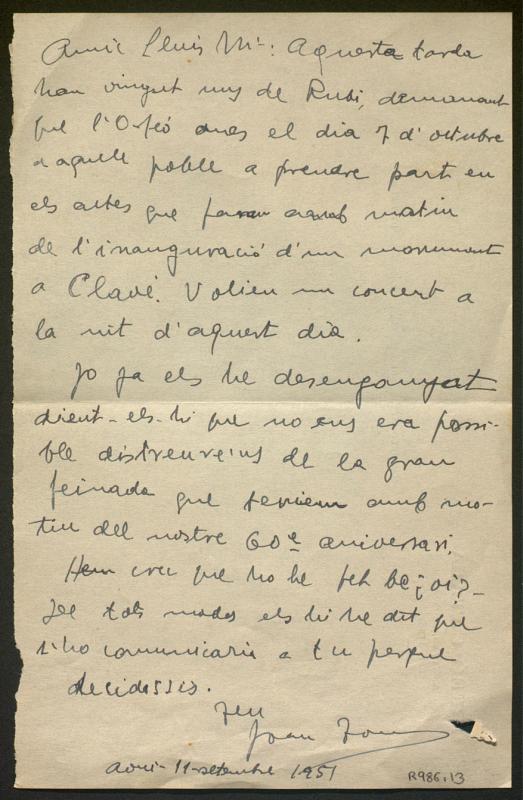 Amic Lluís Mª: Aquesta tarda
han vingut uns de Rubí, demanant
que l'Orfeó anés el dia 7 d'octubre
a aquell poble a prendre part en
els actes que faran amb motiu
de l'inauguració d'un monument
a Clavé. Volien un concert a
la nit d'aquest dia.
Jo ja els he desenganyat
dient-els-hi que no ens era possi-
ble distreure'ns de la gran
feinada que teniem amb mo-
tiu del nostre 60è aniversari.
Hem crec que ho he fet bé ¿oi?-
De tots modes els hi he dit que
t'ho comunicaria a tu perquè
decidissis.
Teu
Joan
Avui- 11-setembre 1951
R986,13